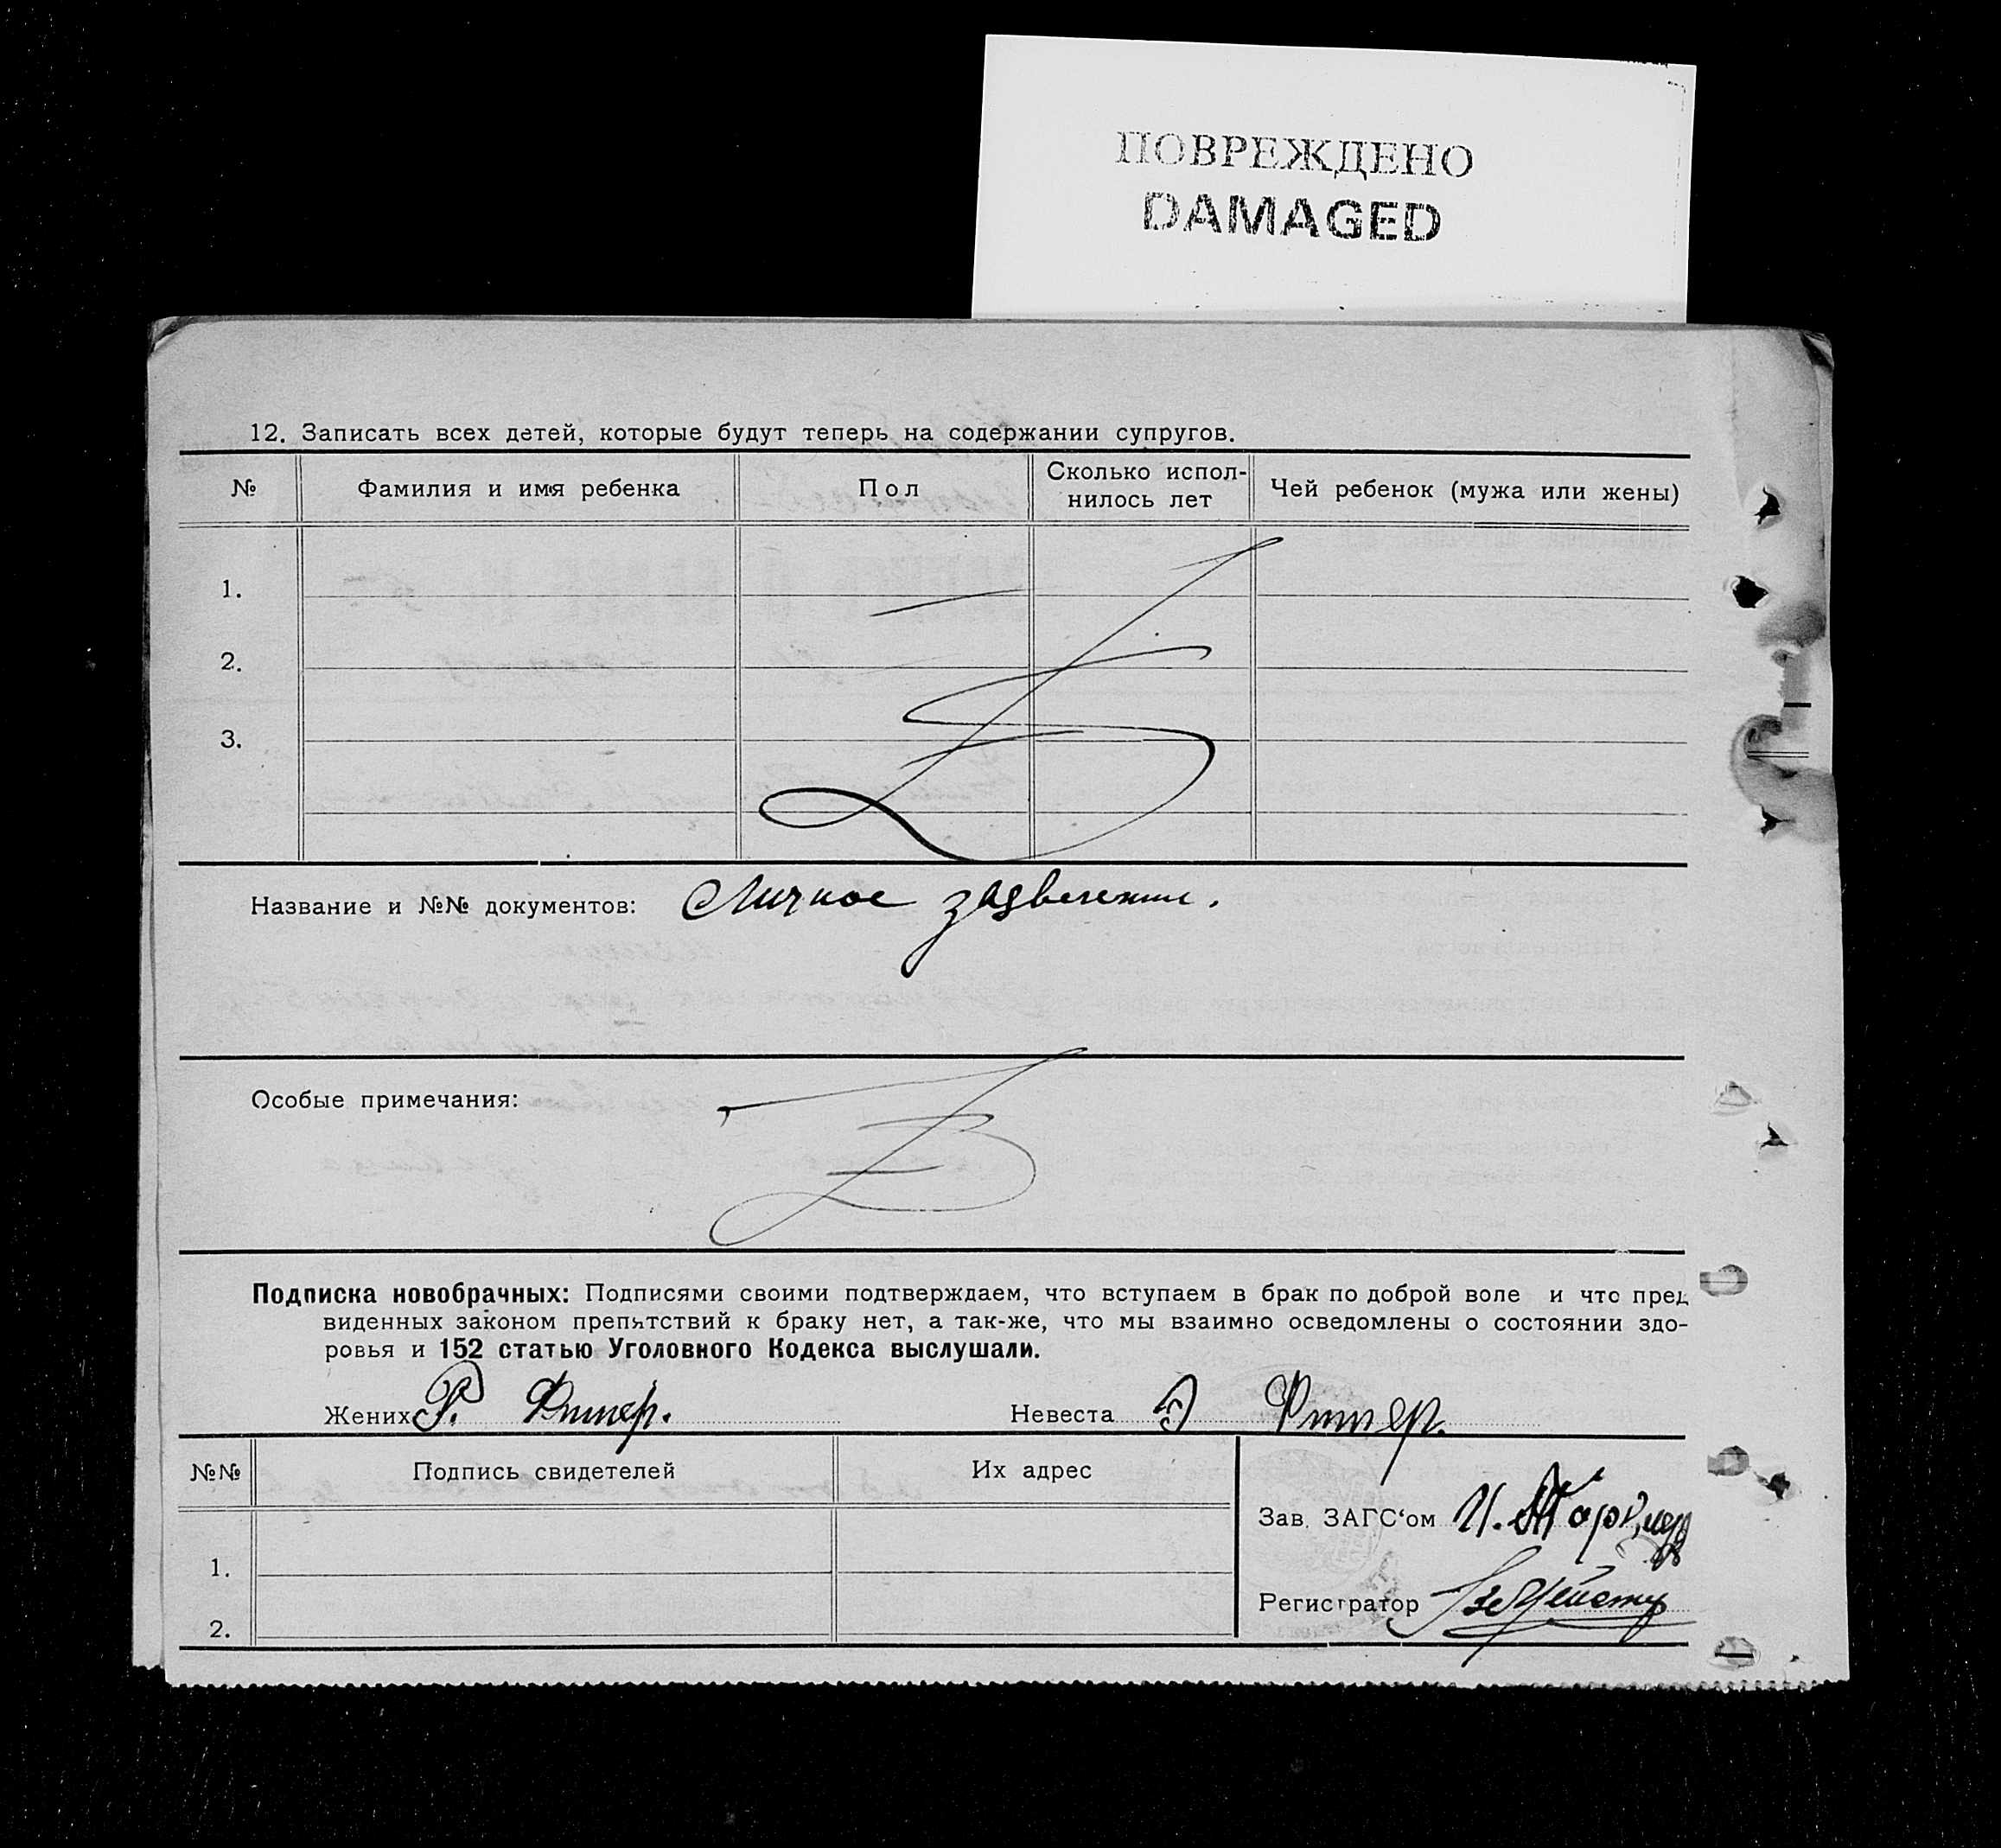 ПОВРЕЖДЕНО
DAMAGED
12. Записать всех детей, которые будут теперь на содержании супругов.
№ Фамилия и имя ребенка Пол Сколько испол-нилось лет Чей ребенок (мужа или жены)
1.
2.
3.
Название и №№ документов: Личное
Особые примечания:
Подписка новобрачных: Подписями своими подтверждаем, что вступаем в брак по доброй воле и что пред
виденных законом препятствий к браку нет, а так-же, что мы взаимно осведомлены о состоянии здо-
ровья и 152 статью Уголовного Кодекса выслушали.
Жених Р. Невеста
№№ Подпись свидетелей Их адрес
Зав. ЗАГС'ом И.
1.
Регистратор
2.